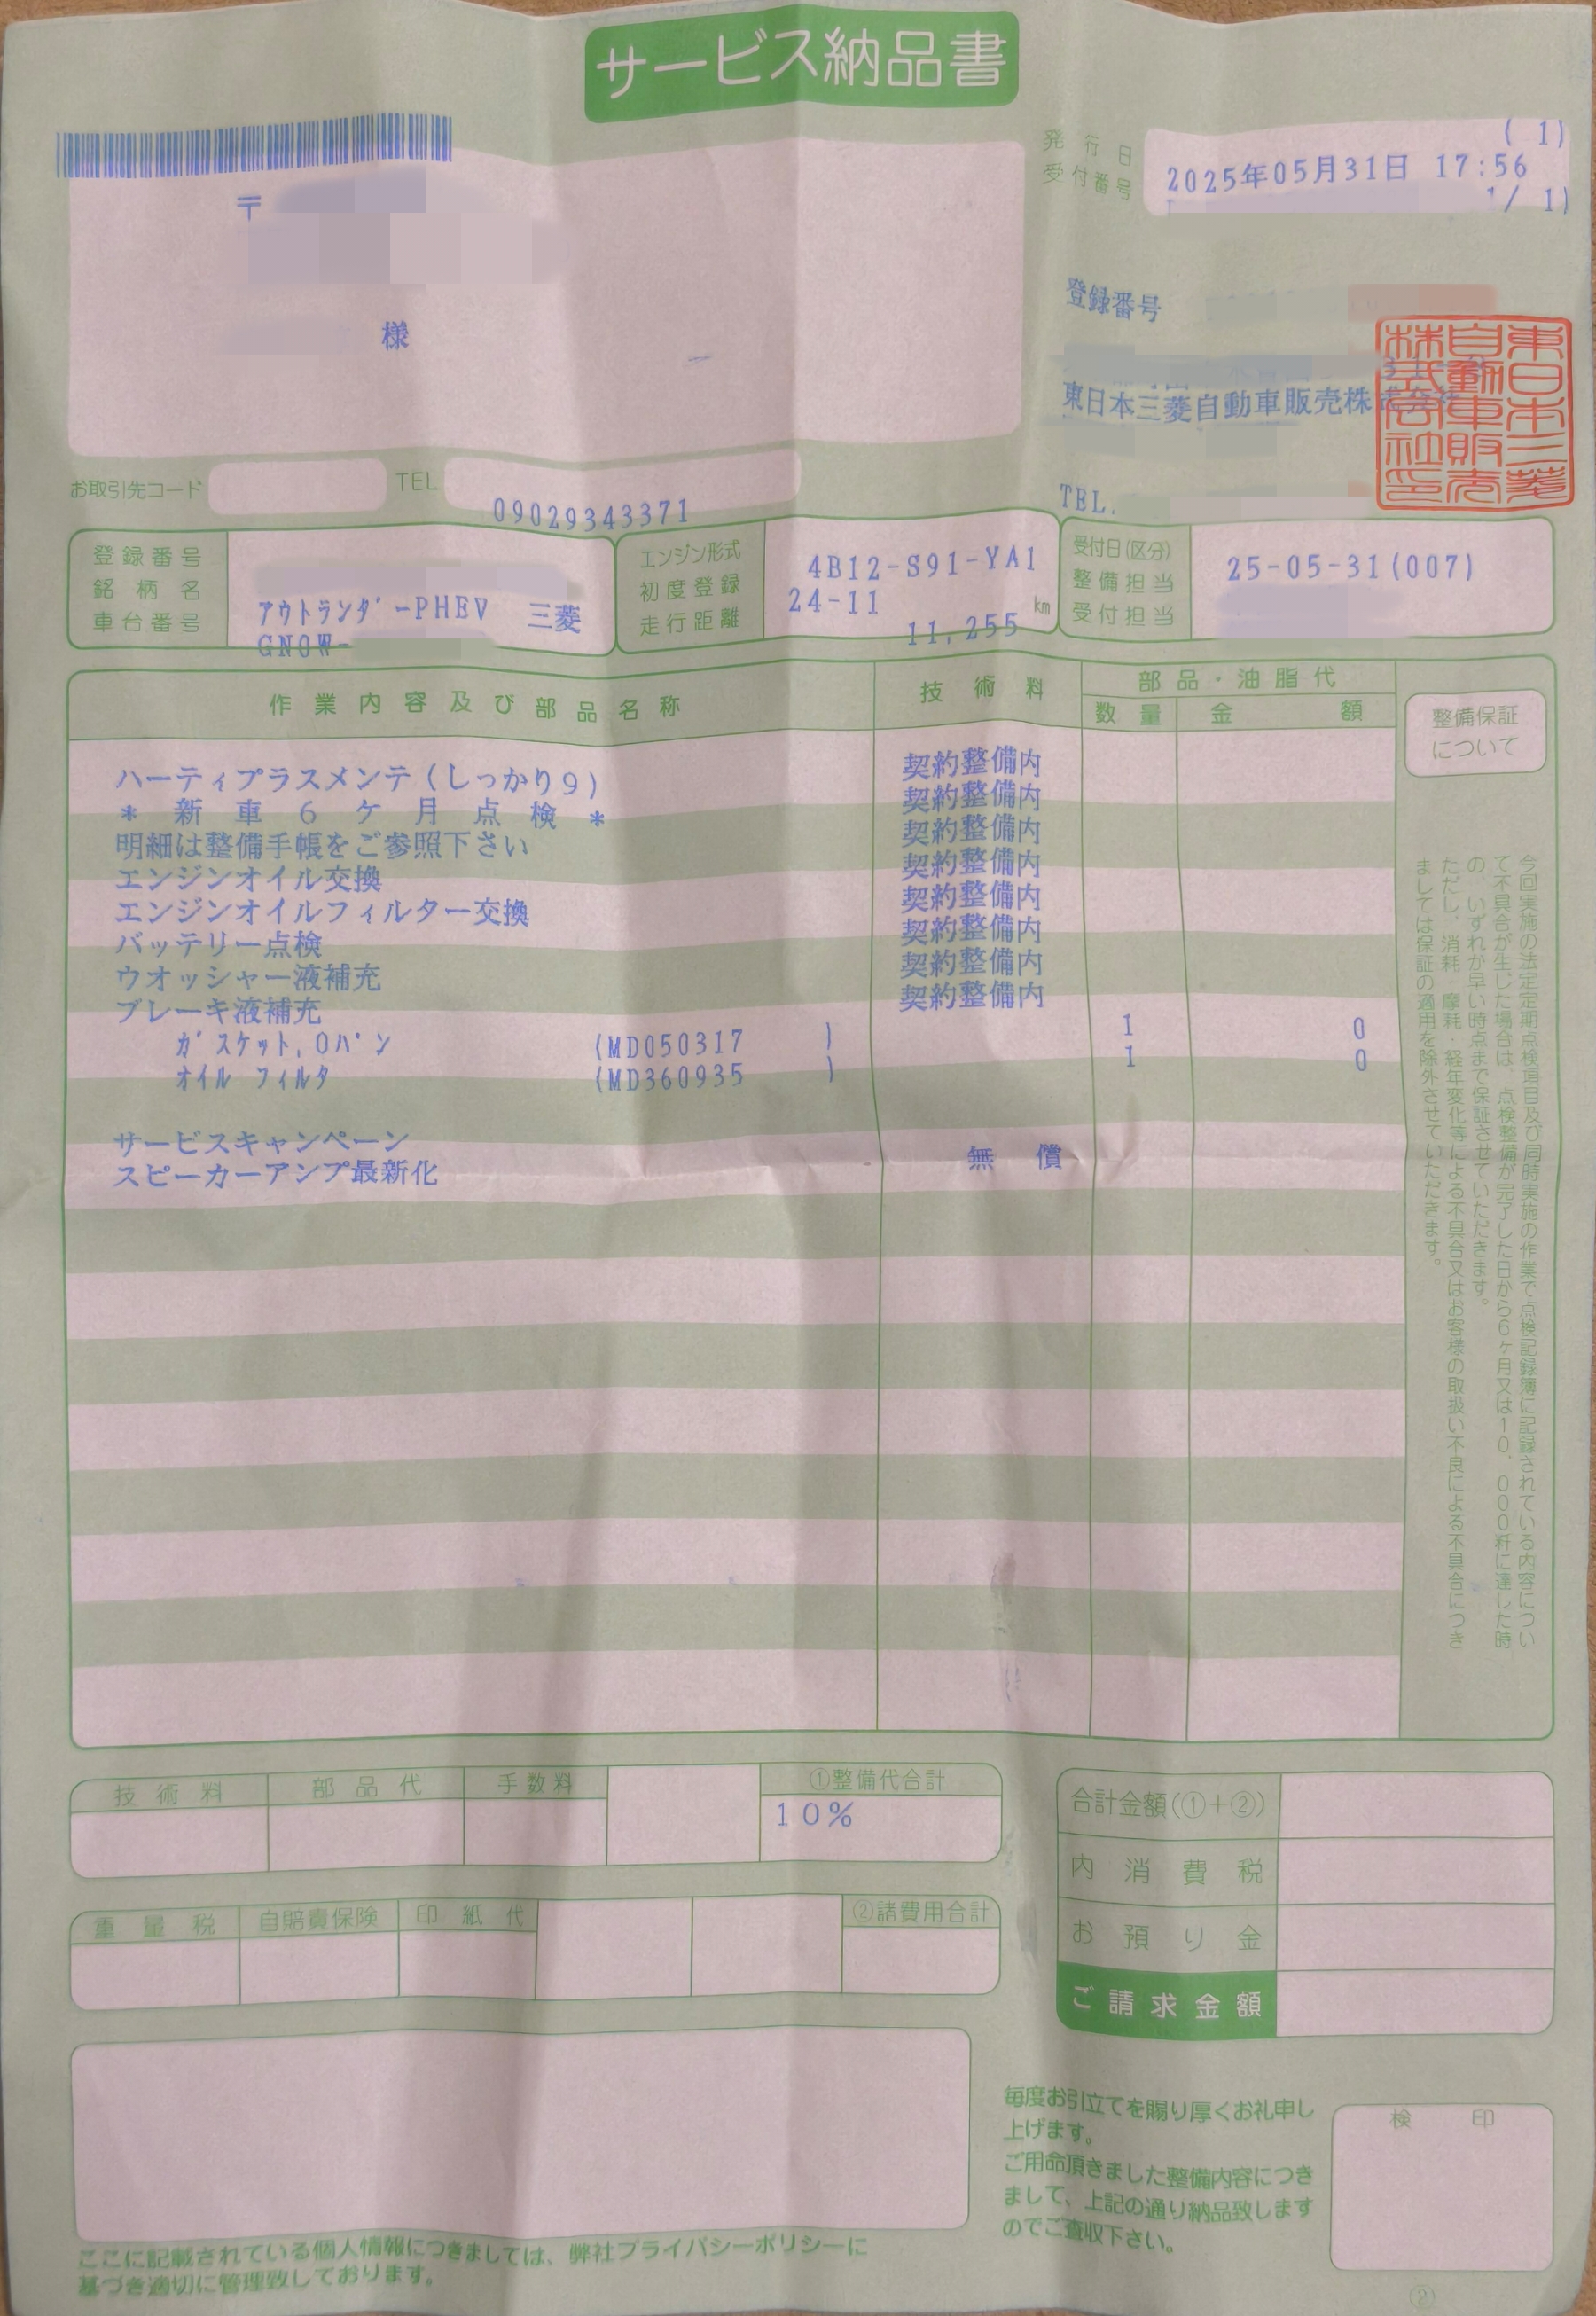 サービス納品書
発行日
受付番号
( 1)
2025年05月31日 17:56
1/ 1)
〒
様
登録番号
東日本三菱自動車販売株式会社
東日本三菱自動車販売株式会社印
TEL.
お取引先コード
TEL
09029343371
登録番号
銘柄名
車台番号
アウトランダーPHEV 三菱
GN0W-
エンジン形式
初度登録
走行距離
4B12-S91-YA1
24-11
11,255
km
受付日(区分)
整備担当
受付担当
25-05-31(007)
作業内容及び部品名称
技術料
部品・油脂代
数量
金額
整備保証
について
ハーティプラスメンテ(しっかり9) 契約整備内
* 新車6ケ月点検 * 契約整備内
明細は整備手帳をご参照下さい 契約整備内
エンジンオイル交換 契約整備内
エンジンオイルフィルター交換 契約整備内
バッテリー点検 契約整備内
ウオッシャー液補充 契約整備内
ブレーキ液補充 契約整備内
ガスケット,Oパン (MD050317 ) 1 0
オイル フィルタ (MD360935 ) 1 0
サービスキャンペーン
スピーカーアンプ最新化 無償
今回実施の法定定期点検項目及び同時実施の作業で点検記録簿に記録されている内容につい
て不具合が生じた場合は、点検整備が完了した日から6ヶ月又は10,000粁に達した時
の、いずれか早い時点まで保証させていただきます。
ただし、消耗・摩耗・経年変化等による不具合又はお客様の取扱い不良による不具合につき
ましては保証の適用を除外させていただきます。
技術料
部品代
手数料
①整備代合計
10%
重量税
自賠責保険
印紙代
②諸費用合計
合計金額(①+②)
内消費税
お預り金
ご請求金額
毎度お引立てを賜り厚くお礼申し
上げます。
ご用命頂きました整備内容につき
まして、上記の通り納品致します
のでご査収下さい。
検印
ここに記載されている個人情報につきましては、弊社プライバシーポリシーに
基づき適切に管理致しております。
②